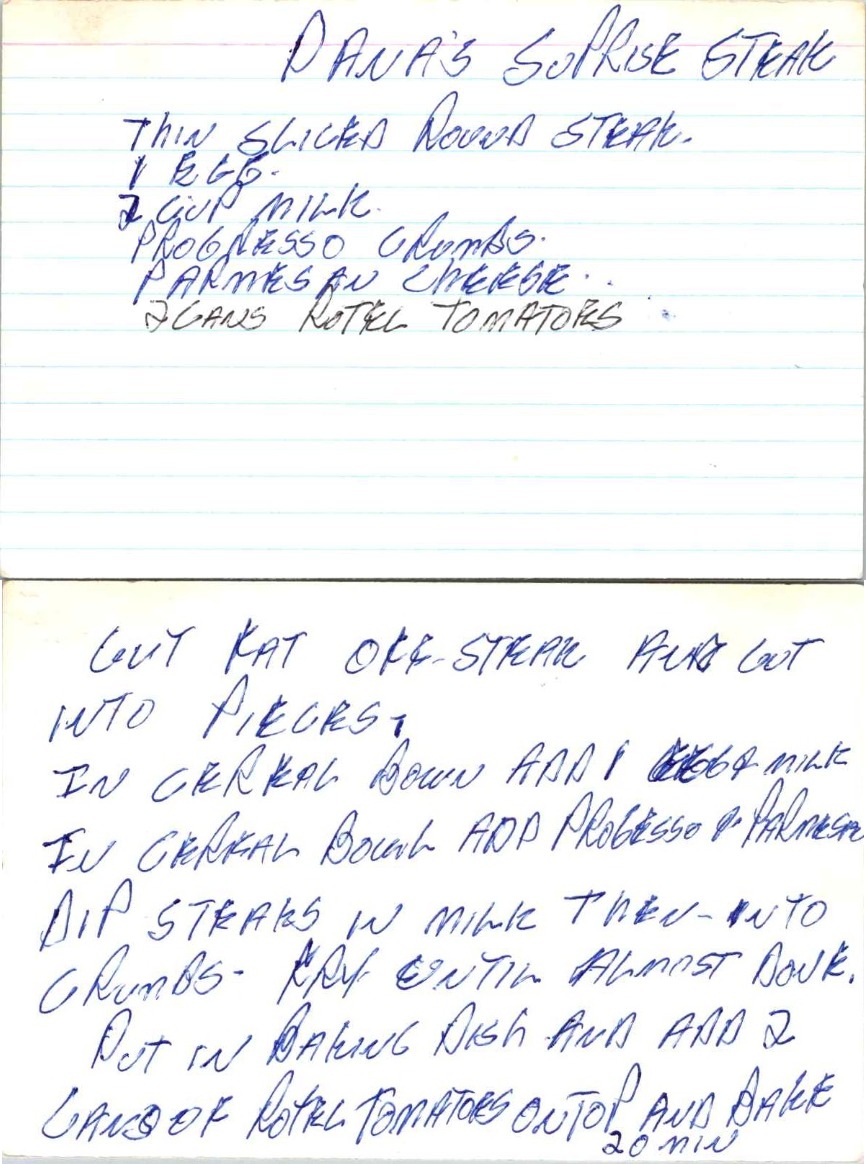 DANA'S SUPRISE STEAK
THIN SLICED ROUND STEAK.
1 EGG.
2 CUP MILK.
PROGRESSO CRUMBS.
PARMESAN CHEESE.
2 CANS ROTEL TOMATOES
CUT FAT OFF STEAK AND CUT
INTO PIECES.
IN CEREAL BOWL ADD 1 EGG & MILK
IN CEREAL BOWL ADD PROGESSO & PARMESAN
DIP STEAKS IN MILK THEN - INTO
CRUMBS - FRY UNTIL ALMOST DONE.
PUT IN BAKING DISH AND ADD 2
CANS OF ROTEL TOMATOES ON TOP AND BAKE
20 MIN